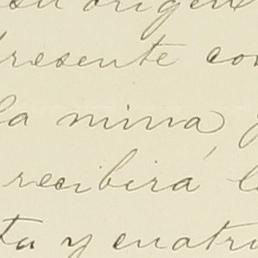 su origen
presente con
la mina,
recibirá l
ta y cuatro